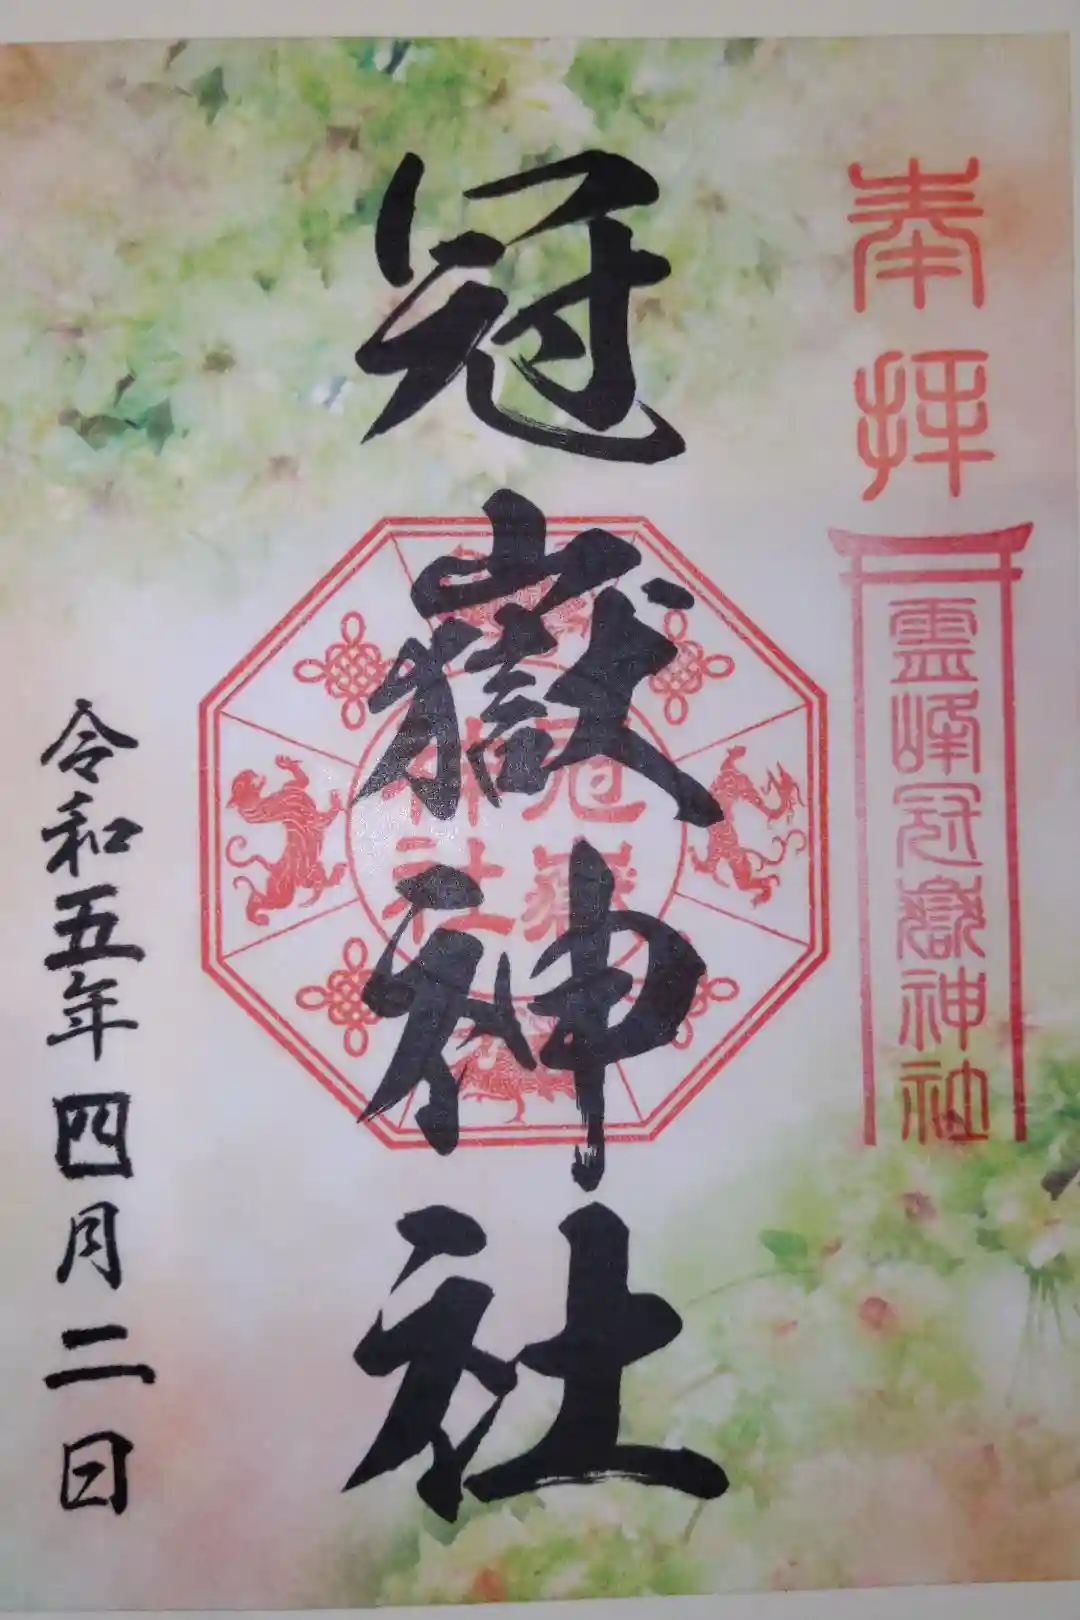 奉拝
霊峰冠嶽神社
冠嶽神社
冠嶽
神社
令和五年四月二日